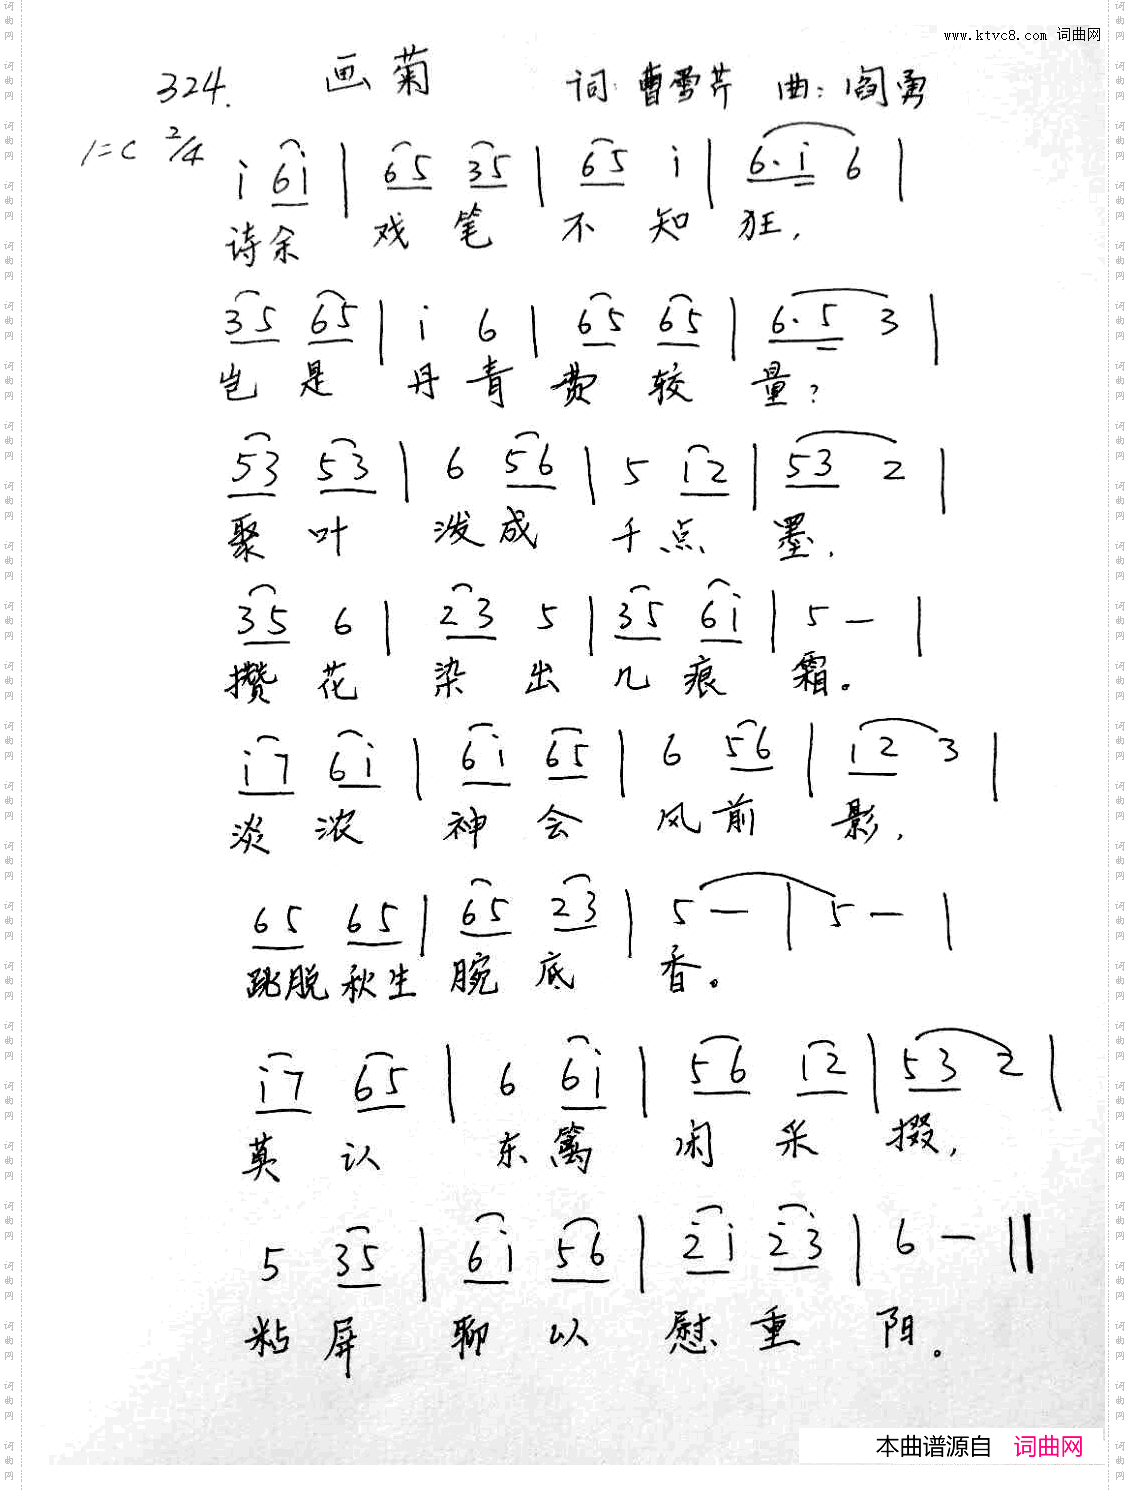 www.ktvc8.com 词曲网
324. 画菊 词:曹雪芹 曲:阎勇
1=C 2/4
i 6i | 65 35 | 65 i | 6·i 6 |
诗余 戏笔 不知 狂,
35 65 | i 6 | 65 65 | 6·5 3 |
岂是 丹青 费较 量?
53 53 | 6 56 | 5 i2 | 53 2 |
聚叶 泼成 千点 墨,
35 6 | 23 5 | 35 6i | 5 — |
攒花 染出 几痕 霜。
i7 6i | 6i 65 | 6 56 | i2 3 |
淡浓 神会 风前 影,
65 65 | 65 23 | 5 — | 5 — |
跳脱秋生 腕底 香。
i7 65 | 6 6i | 56 i2 | 53 2 |
莫认 东篱 闲采 掇,
5 35 | 6i 56 | 2i 23 | 6 — ‖
粘屏 聊以 慰重 阳。
本曲谱源自 词曲网